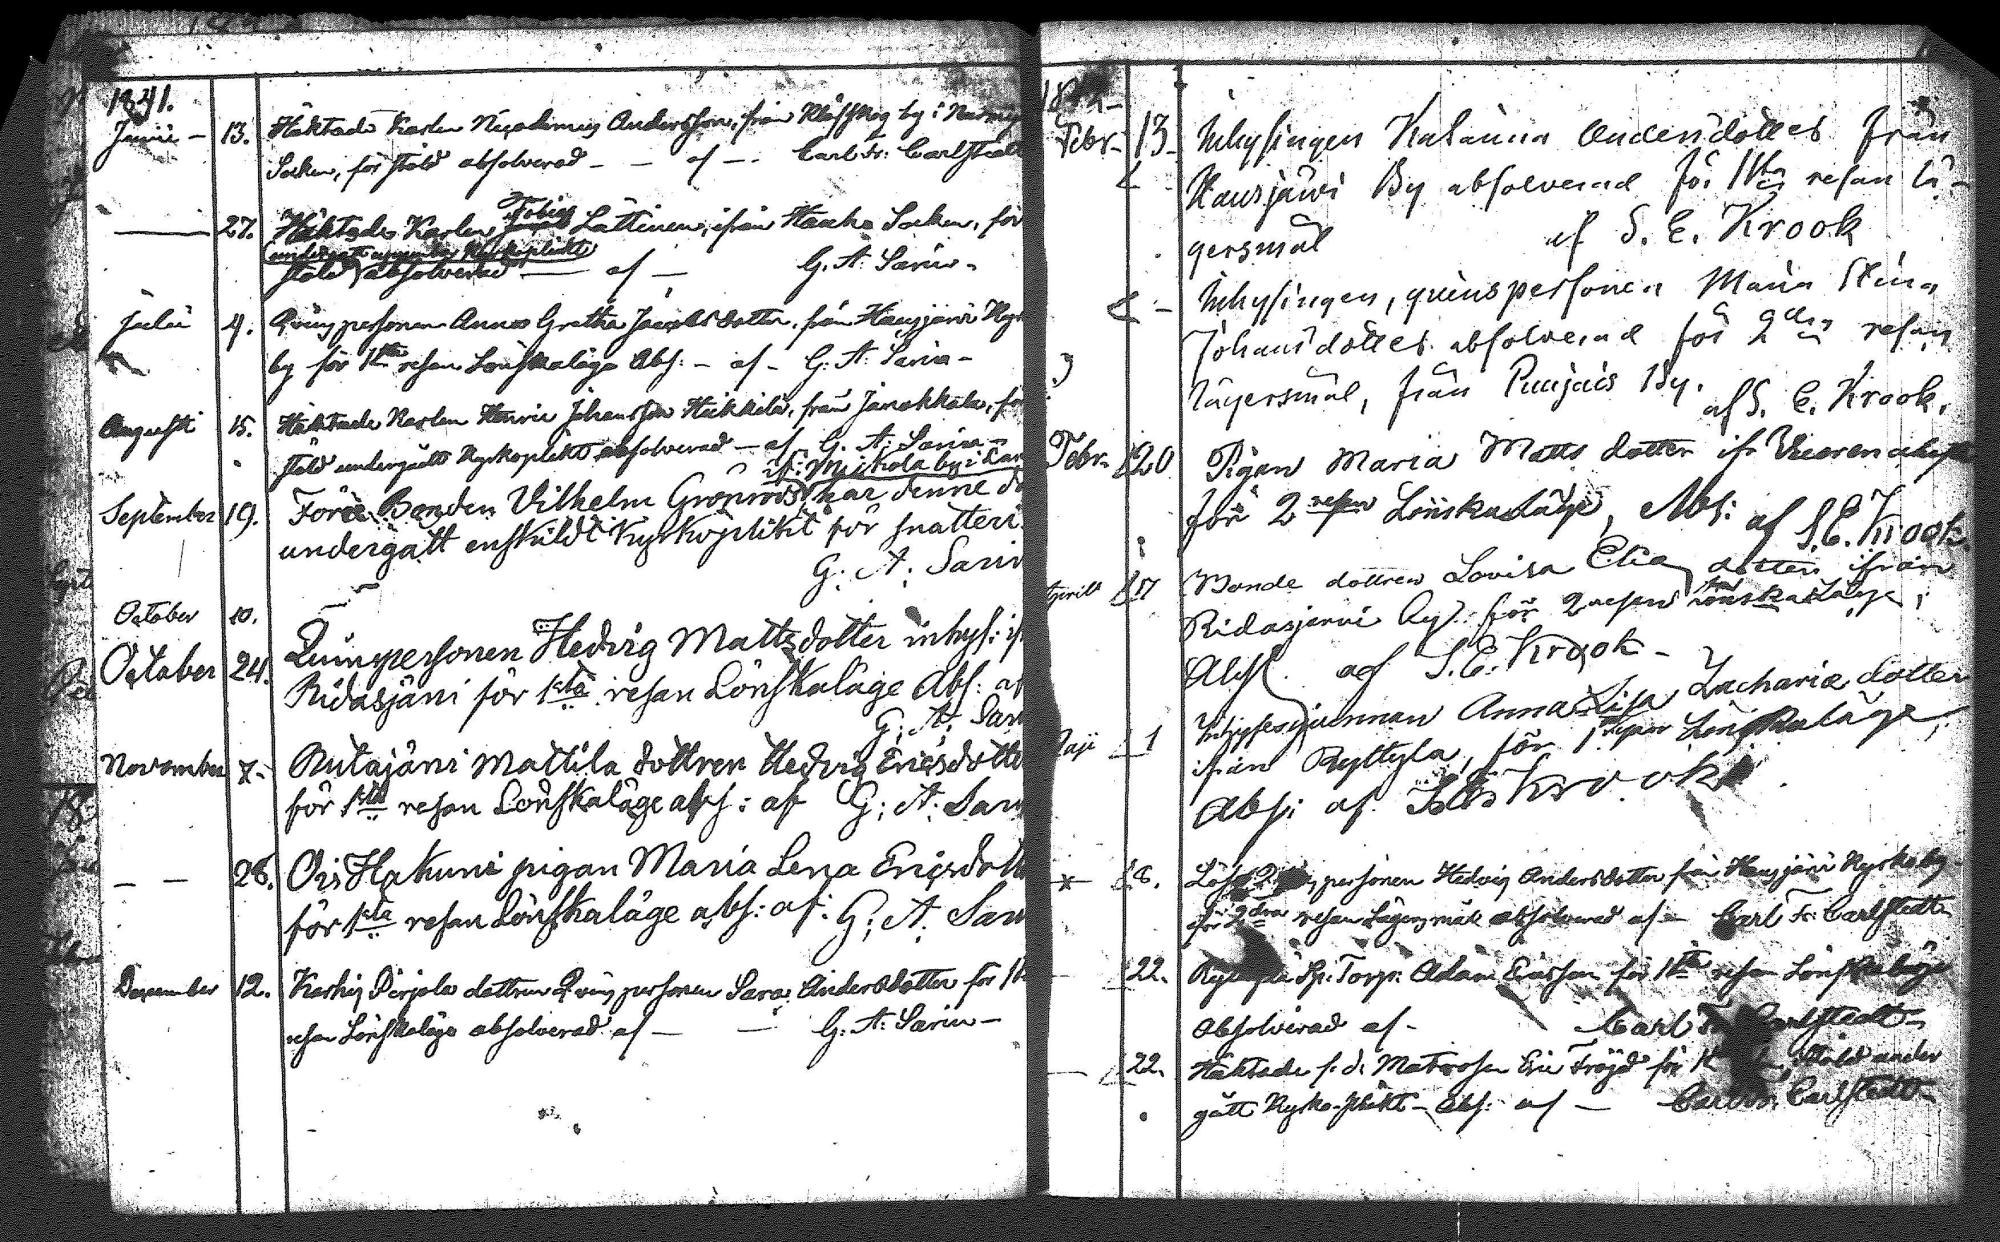 1841.
Junii - 13. Häktade Karlen Nicodemus Andersson, från Klåfskog by i
Socken, för stöld absolverad - - af - - Carl Fr: Carlstedt
27. Häktade Karlen Tobias Lättinen, ifrån Socken, för
undergått Kyrkoplikt
stöld absolverad - af - G. A. Sarin -
Julii 4. Qvinspersonen Anna Gretha Jacobsdotter, från Hausjärvi Kyrko
by för 1sta resan Lönskaläge Abs: - af - G: A: Sarin -
Augusti 15. Häktade Karlen Henric Johansson Heikkilä, från Janakkala, för
stöld undergått Kyrkoplikt absolverad - af G. A: Sarin -
if: Mickola by i
September 19. Förre Bonden Vilhelm Grönroos har denne
undergått enskildt Kyrkoplikt för snatteri
G. A. Sarin
October 10.
October 24. Quinspersonen Hedvig Mattsdotter inhys:
Ridasjärvi för 1sta resan Lönskaläge Abs: af
G: A: Sarin
November 7. Rutajärvi Mattila dottren Hedvig Ericsdotter
för 1sta resan Lönskaläge abs: af G: A: Sarin
- - 28. Ois Hakuni pigan Maria Lena Ericsdotter
för 1sta resan Lönskaläge abs: af: G: A: Sarin
December 12. Pirjola dottren Qvinspersonen Sara Andersdotter för 1sta
resan Lönskaläge absolverad af - - G: A: Sarin -
Febr. 13. Inhysingen Katarina Andersdotter från
Hausjärvi By absolverad för 1sta resan lä-
gersmål af S. E. Krook
Inhysingen, quinspersonen Maria Stina
Johansdotter absolverad för 2dra resan
lägersmål, från Puujais By. af S. E. Krook.
Febr. 20 Pigan Maria Matts dotter ifr
för 2 resan Lönskaläge, Abs: af S. E. Krook.
Aprill 17 Bonde dottren Lovisa Elia dotter ifrån
Ridasjervi by för 2 resan Lönskaläge,
Abs. af S. E. Krook -
Maji 1 Inhyses qvinnan Anna Lisa Zacharia dotter
ifrån Ryttylä, för 1 resan Lönskaläge,
Abs: af S E Krook
8. personen Hedvig Andersdotter från Hausjärvi Kyrkoby
för 2dra resan Lägersmål absolverad af - Carl Fr: Carlstedt
22. Torp: Adam Ericsson för 1sta resan Lönskaläge
Absolverad af - Carl Carlstedt -
22. Häktade f. d. Matrosen Eric Fröjd för stöld under
gått Kyrko-plikt - Abs: af - Carl Fr. Carlstedt -